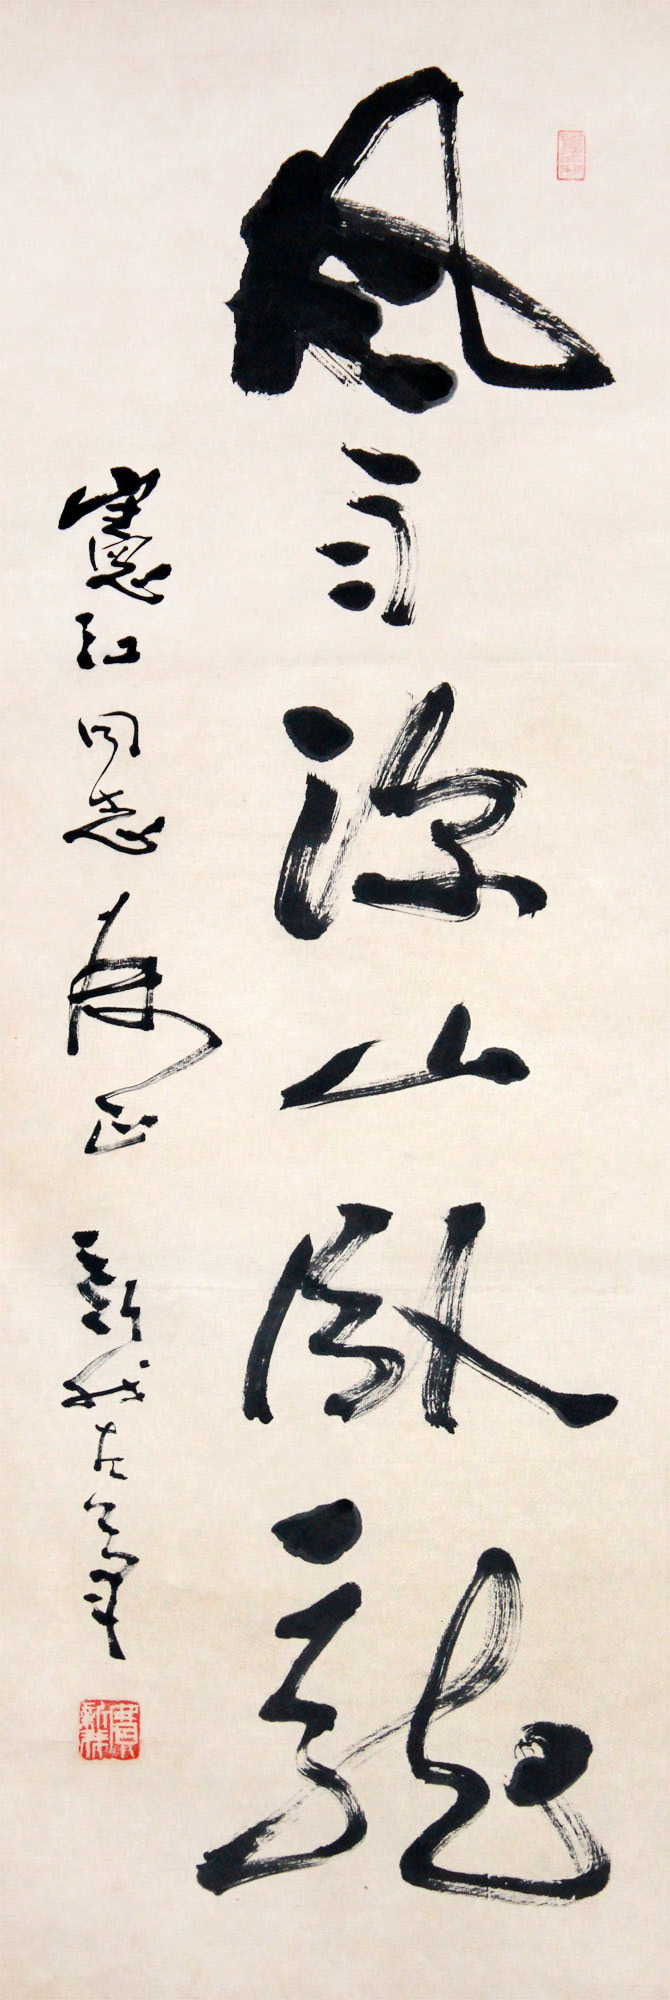 風雨深山臥龍
憲江同志正 新我左筆